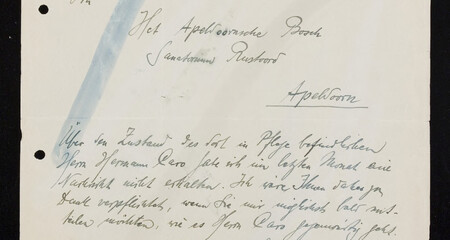 An
Het Apeldoornsche Bosch
Sanatorium Rustoord
Apeldoorn
Über den Zustand des dort in Pflege befindlichen
Herrn Hermann Caro habe ich im letzten Monat eine
Nachricht nicht erhalten. Ich wäre Ihnen daher zu
Dank verpflichtet, wenn Sie mir möglichst bald mit-
teilen möchten, wie es Herrn Caro gegenwärtig geht.